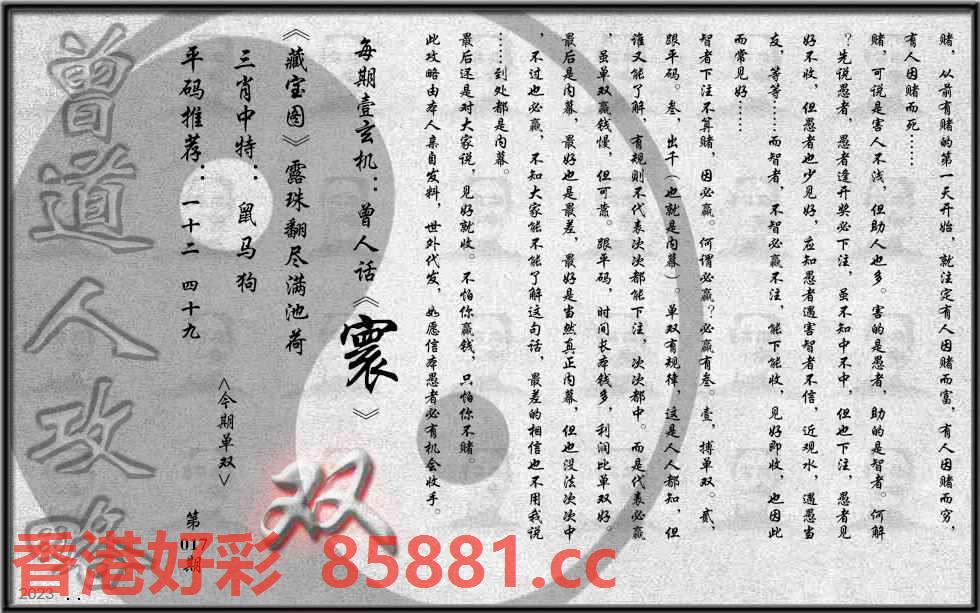 赌，从前有赌的第一天开始，就注定有人因赌而富，有人因赌而穷，
有人因赌而死……
赌，可说是害人不浅，但助人也多。害的是愚者，助的是智者。何解
？先说愚者，愚者逢开奖必下注，虽不知中不中，但也下注，愚者见
好不收，但愚者也少见好，应知愚者遇害智者不信，近观水，遇愚当
友，等等……而智者，不智必赢不注，能下能收，见好即收，也因此
而常见好……
智者下注不算赌，因必赢。何谓必赢？必赢有叁。壹，搏单双。贰，
跟平码。叁，出千（也就是内幕）。单双有规律，这是人人都知，但
谁又能了解，有规则不代表次次都能下注，次次都中。而是代表必赢
，虽单双赢钱慢，但可靠。跟平码，时间长本钱多，利润比单双好。
最后是内幕，最好也是最差，最好是当然真正内幕，但也没法次次中
，不过也必赢，不知大家能不能了解这句话，最差的相信也不用我说
……到处都是内幕。
最后还是对大家说，见好就收。不怕你赢钱，只怕你不赌。
此攻略由本人亲自发料，世外代发，如愿信本愚者必有机会收手。
每期壹玄机：曾人话《震》
《藏宝图》露珠翻尽满池荷
三肖中特：鼠马狗
平码推荐：一十二 四十九
<今期单双>
双
第
017
期
曾道人攻略
香港好彩 85881.cc
2023